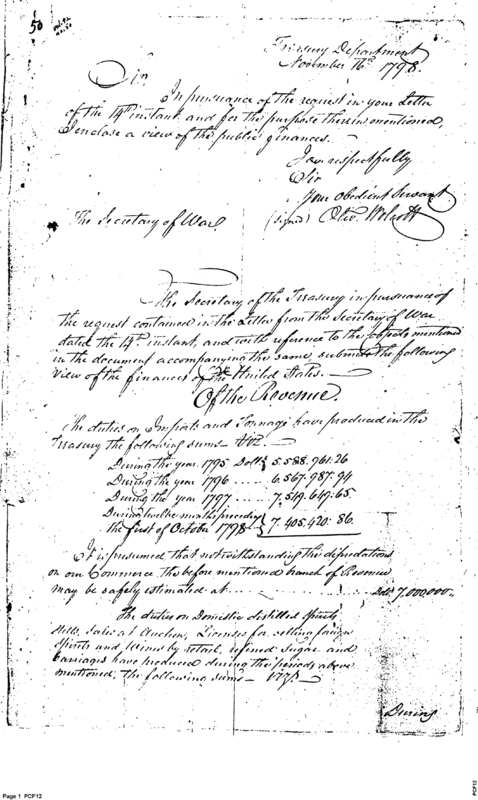 50
Treasury Department
November 16th 1798.
Sir,
In pursuance of the request in your Letter
of the 14th instant, and for the purpose therein mentioned,
I enclose a view of the public finances.
I am respectfully
Sir
Your Obedient Servant
(signed) Oliv. Wolcott
The Secretary of War
The Secretary of the Treasury in pursuance of
the request contained in the Letter from the Secretary of War
dated the 14th instant, and with reference to the objects mentioned
in the document accompanying the same, submits the following
View of the finances of the United States.—
Of the Revenue.
The duties on Imports and Tonnage have produced in the
Treasury the following sums Viz.—
During the year 1795 Dolls. 5.588.961:26
During the year 1796 .... 6.567.987:94
During the year 1797 ..... 7.549.649:65.
During twelve months preceding
the first of October 1798 } 7.405.420:86.
It is presumed that notwithstanding the depredations
on our Commerce the before mentioned branch of Revenue
may be safely estimated at .... Dolls. 7,000,000.
The duties on Domestic distilled Spirits
Stills, Sales at Auction, Licenses for selling foreign
Spirits and Wines by retail, refined Sugar and
Carriages have produced during the periods above
mentioned, the following sums — Viz. —
During
Page 1 PCF12
PCF12